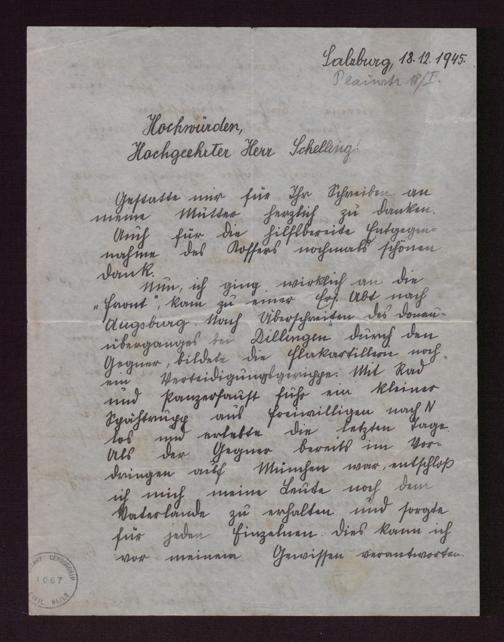 Salzburg, 18.12.1945.
Plainstr.
Hochwürden,
Hochgeehrter Herr Schelling!
Gestatte mir für Ihr Schreiben an
meine Mutter herzlich zu danken.
Auch für die hilfsbereite Entgegen-
nahme des Koffers nochmals schönen
Dank.
Nun, ich ging wirklich an die
„Front", kam zu einer Ers. Abt nach
Augsburg. Nach Überschreiten des Donau-
überganges bei Dillingen durch den
Gegner, bildete die Flakartillerie noch
ein Verteidigungsgerippe. Mit Rad
und Panzerfaust fuhr ein kleiner
Spähtrupp aus Freiwilligen nach N
los und erlebte die letzten Tage.
Als der Gegner bereits im Vor-
dringen auf München war, entschloß
ich mich meine Leute noch dem
Vaterlande zu erhalten und sorgte
für jeden Einzelnen. Dies kann ich
vor meinem Gewissen verantworten.
1067